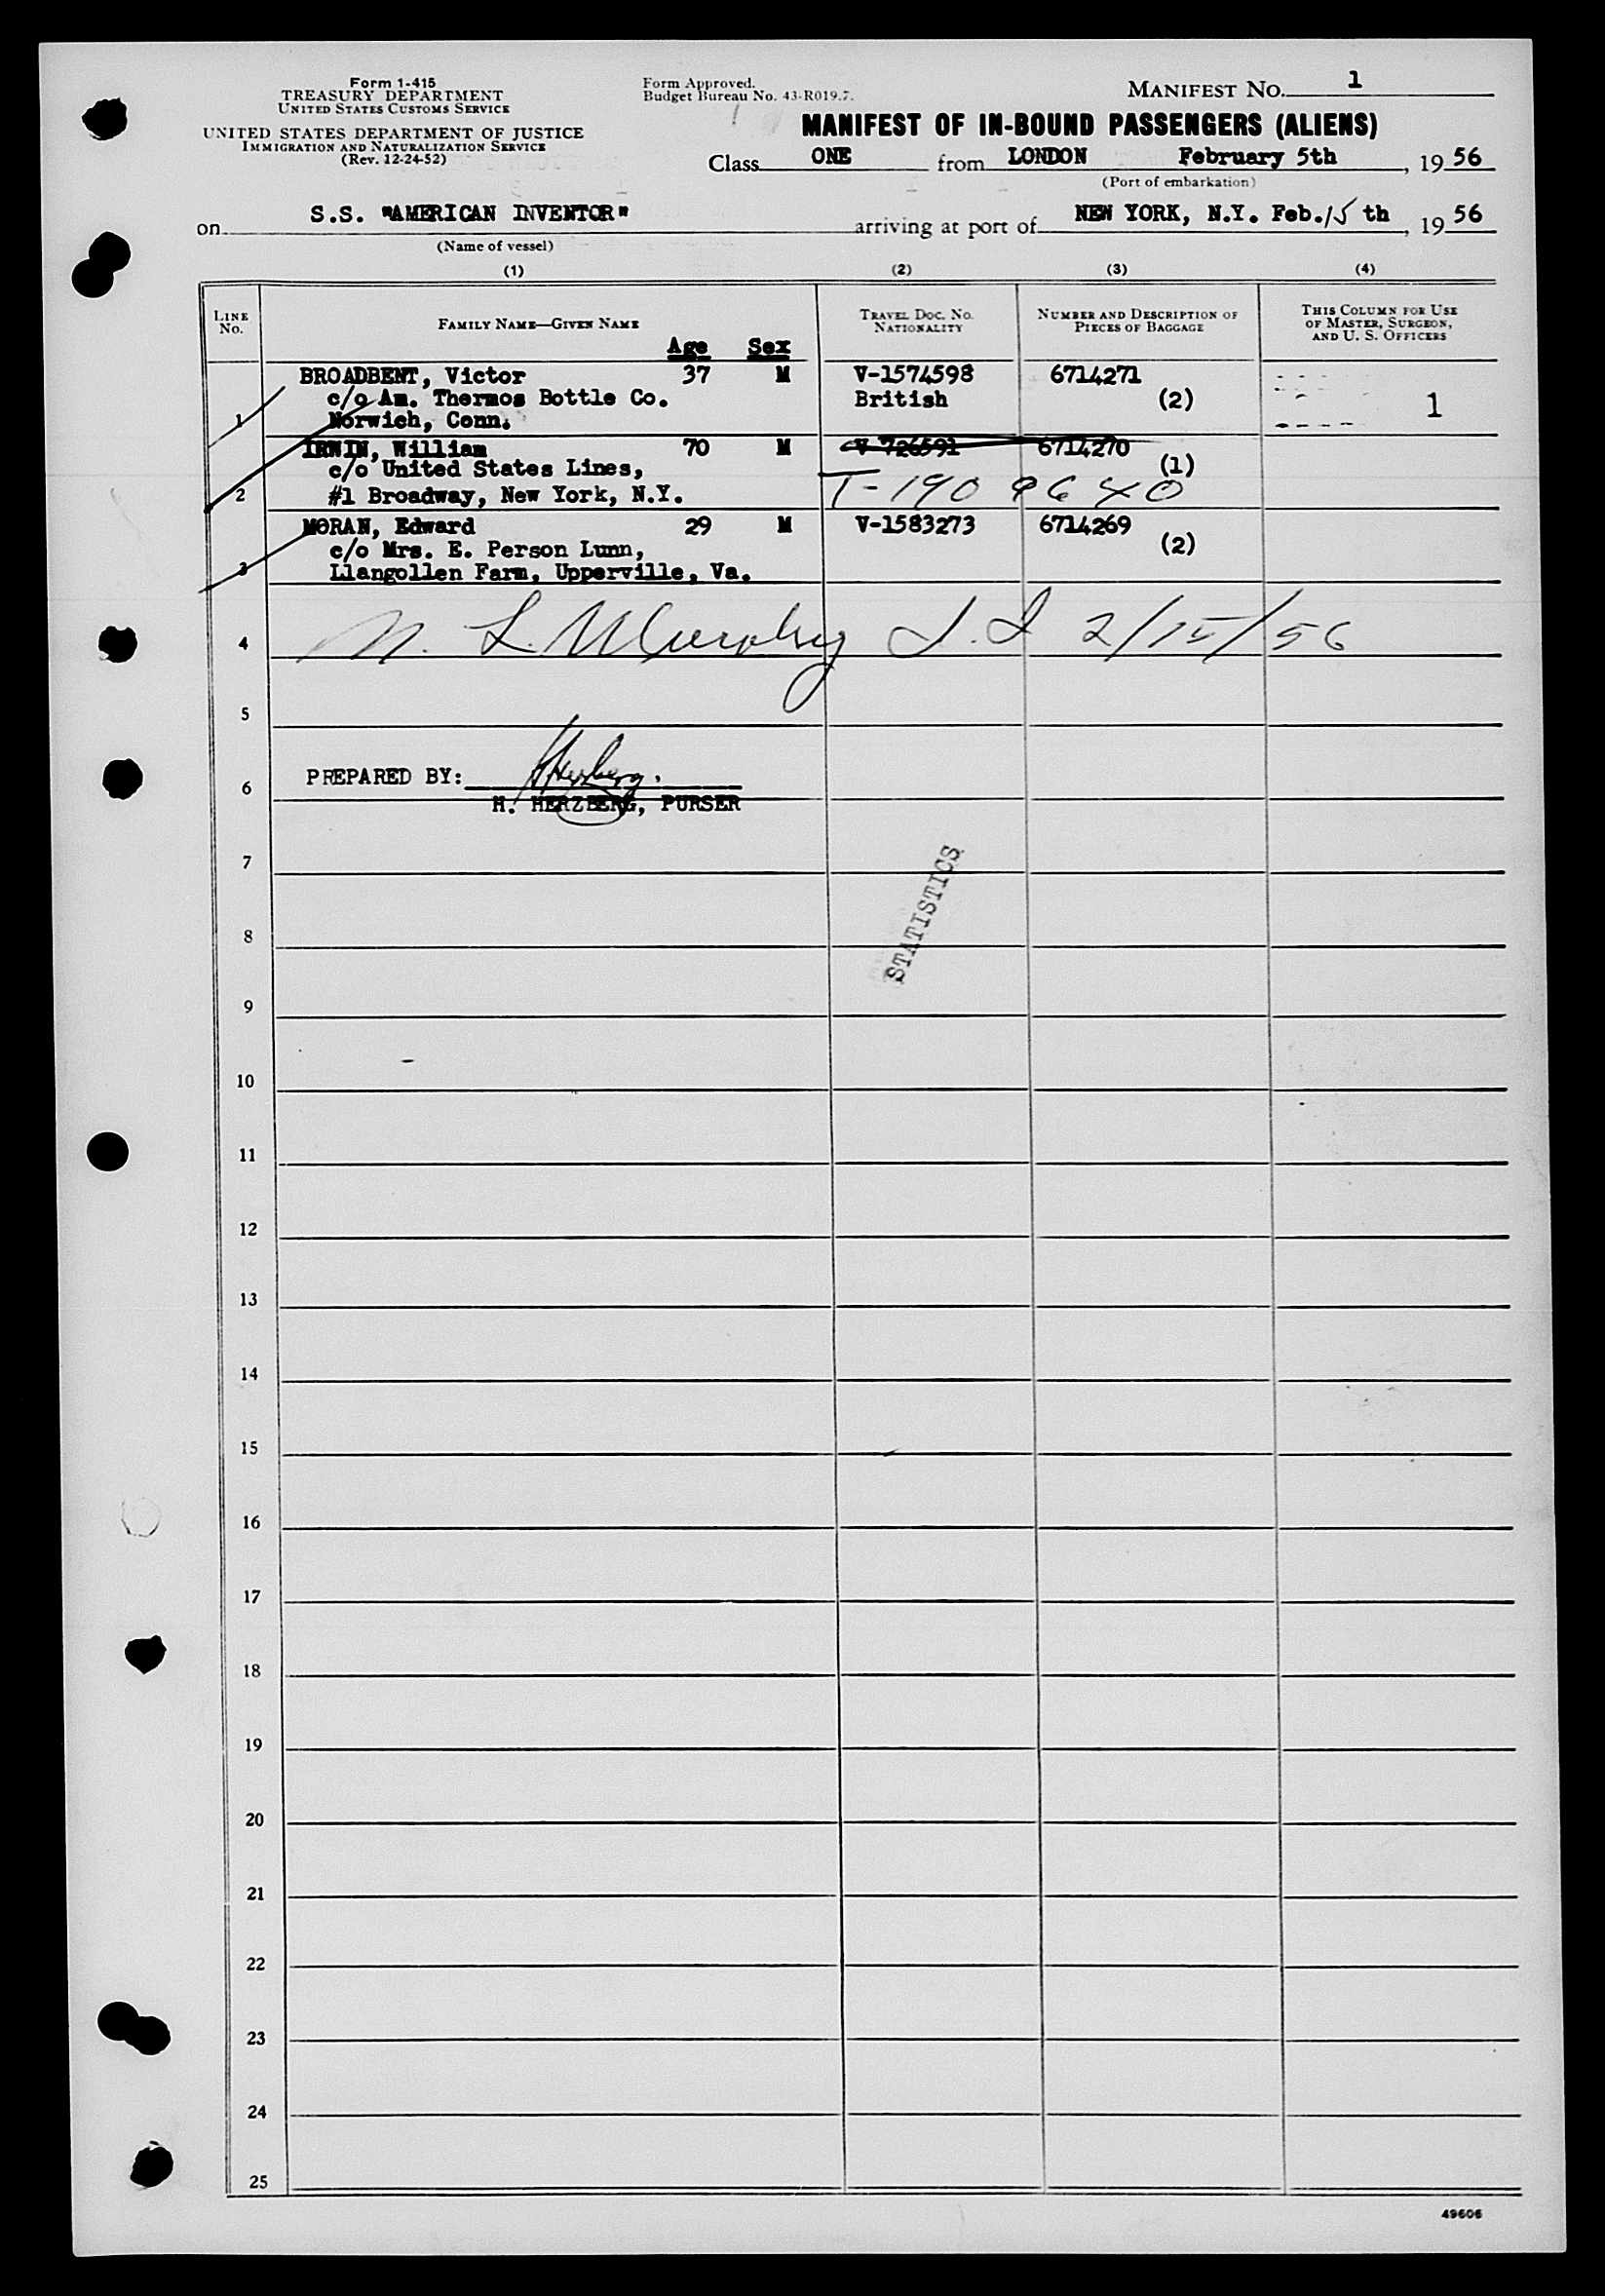 Form 1-415
TREASURY DEPARTMENT
UNITED STATES CUSTOMS SERVICE
UNITED STATES DEPARTMENT OF JUSTICE
IMMIGRATION AND NATURALIZATION SERVICE
(Rev. 12-24-52)
Form Approved.
Budget Bureau No. 43-R019.7.
MANIFEST NO. 1
MANIFEST OF IN-BOUND PASSENGERS (ALIENS)
Class ONE from LONDON February 5th, 19 56
(Port of embarkation)
on S.S. "AMERICAN INVENTOR" arriving at port of NEW YORK, N.Y. Feb. 15 th, 19 56
(Name of vessel)
(1) (2) (3) (4)
LINE No. FAMILY NAME—GIVEN NAME Age Sex TRAVEL DOC. NO. NATIONALITY NUMBER AND DESCRIPTION OF PIECES OF BAGGAGE THIS COLUMN FOR USE OF MASTER, SURGEON, AND U. S. OFFICERS
BROADBENT, Victor 37 M V-1574598 6714271
c/o Am. Thermos Bottle Co. British (2) 1
1 Norwich, Conn.
IRWIN, William 70 M V 726591 6714270
c/o United States Lines, (1)
2 #1 Broadway, New York, N.Y. T-1909640
MORAN, Edward 29 M V-1583273 6714269
c/o Mrs. E. Person Lunn, (2)
3 Llangollen Farm, Upperville, Va.
4 N. L. Murphy I.I 2/15/56
5
6 PREPARED BY: HHerzberg.
H. HERZBERG, PURSER
7
STATISTICS
8
9
10
11
12
13
14
15
16
17
18
19
20
21
22
23
24
25
49606